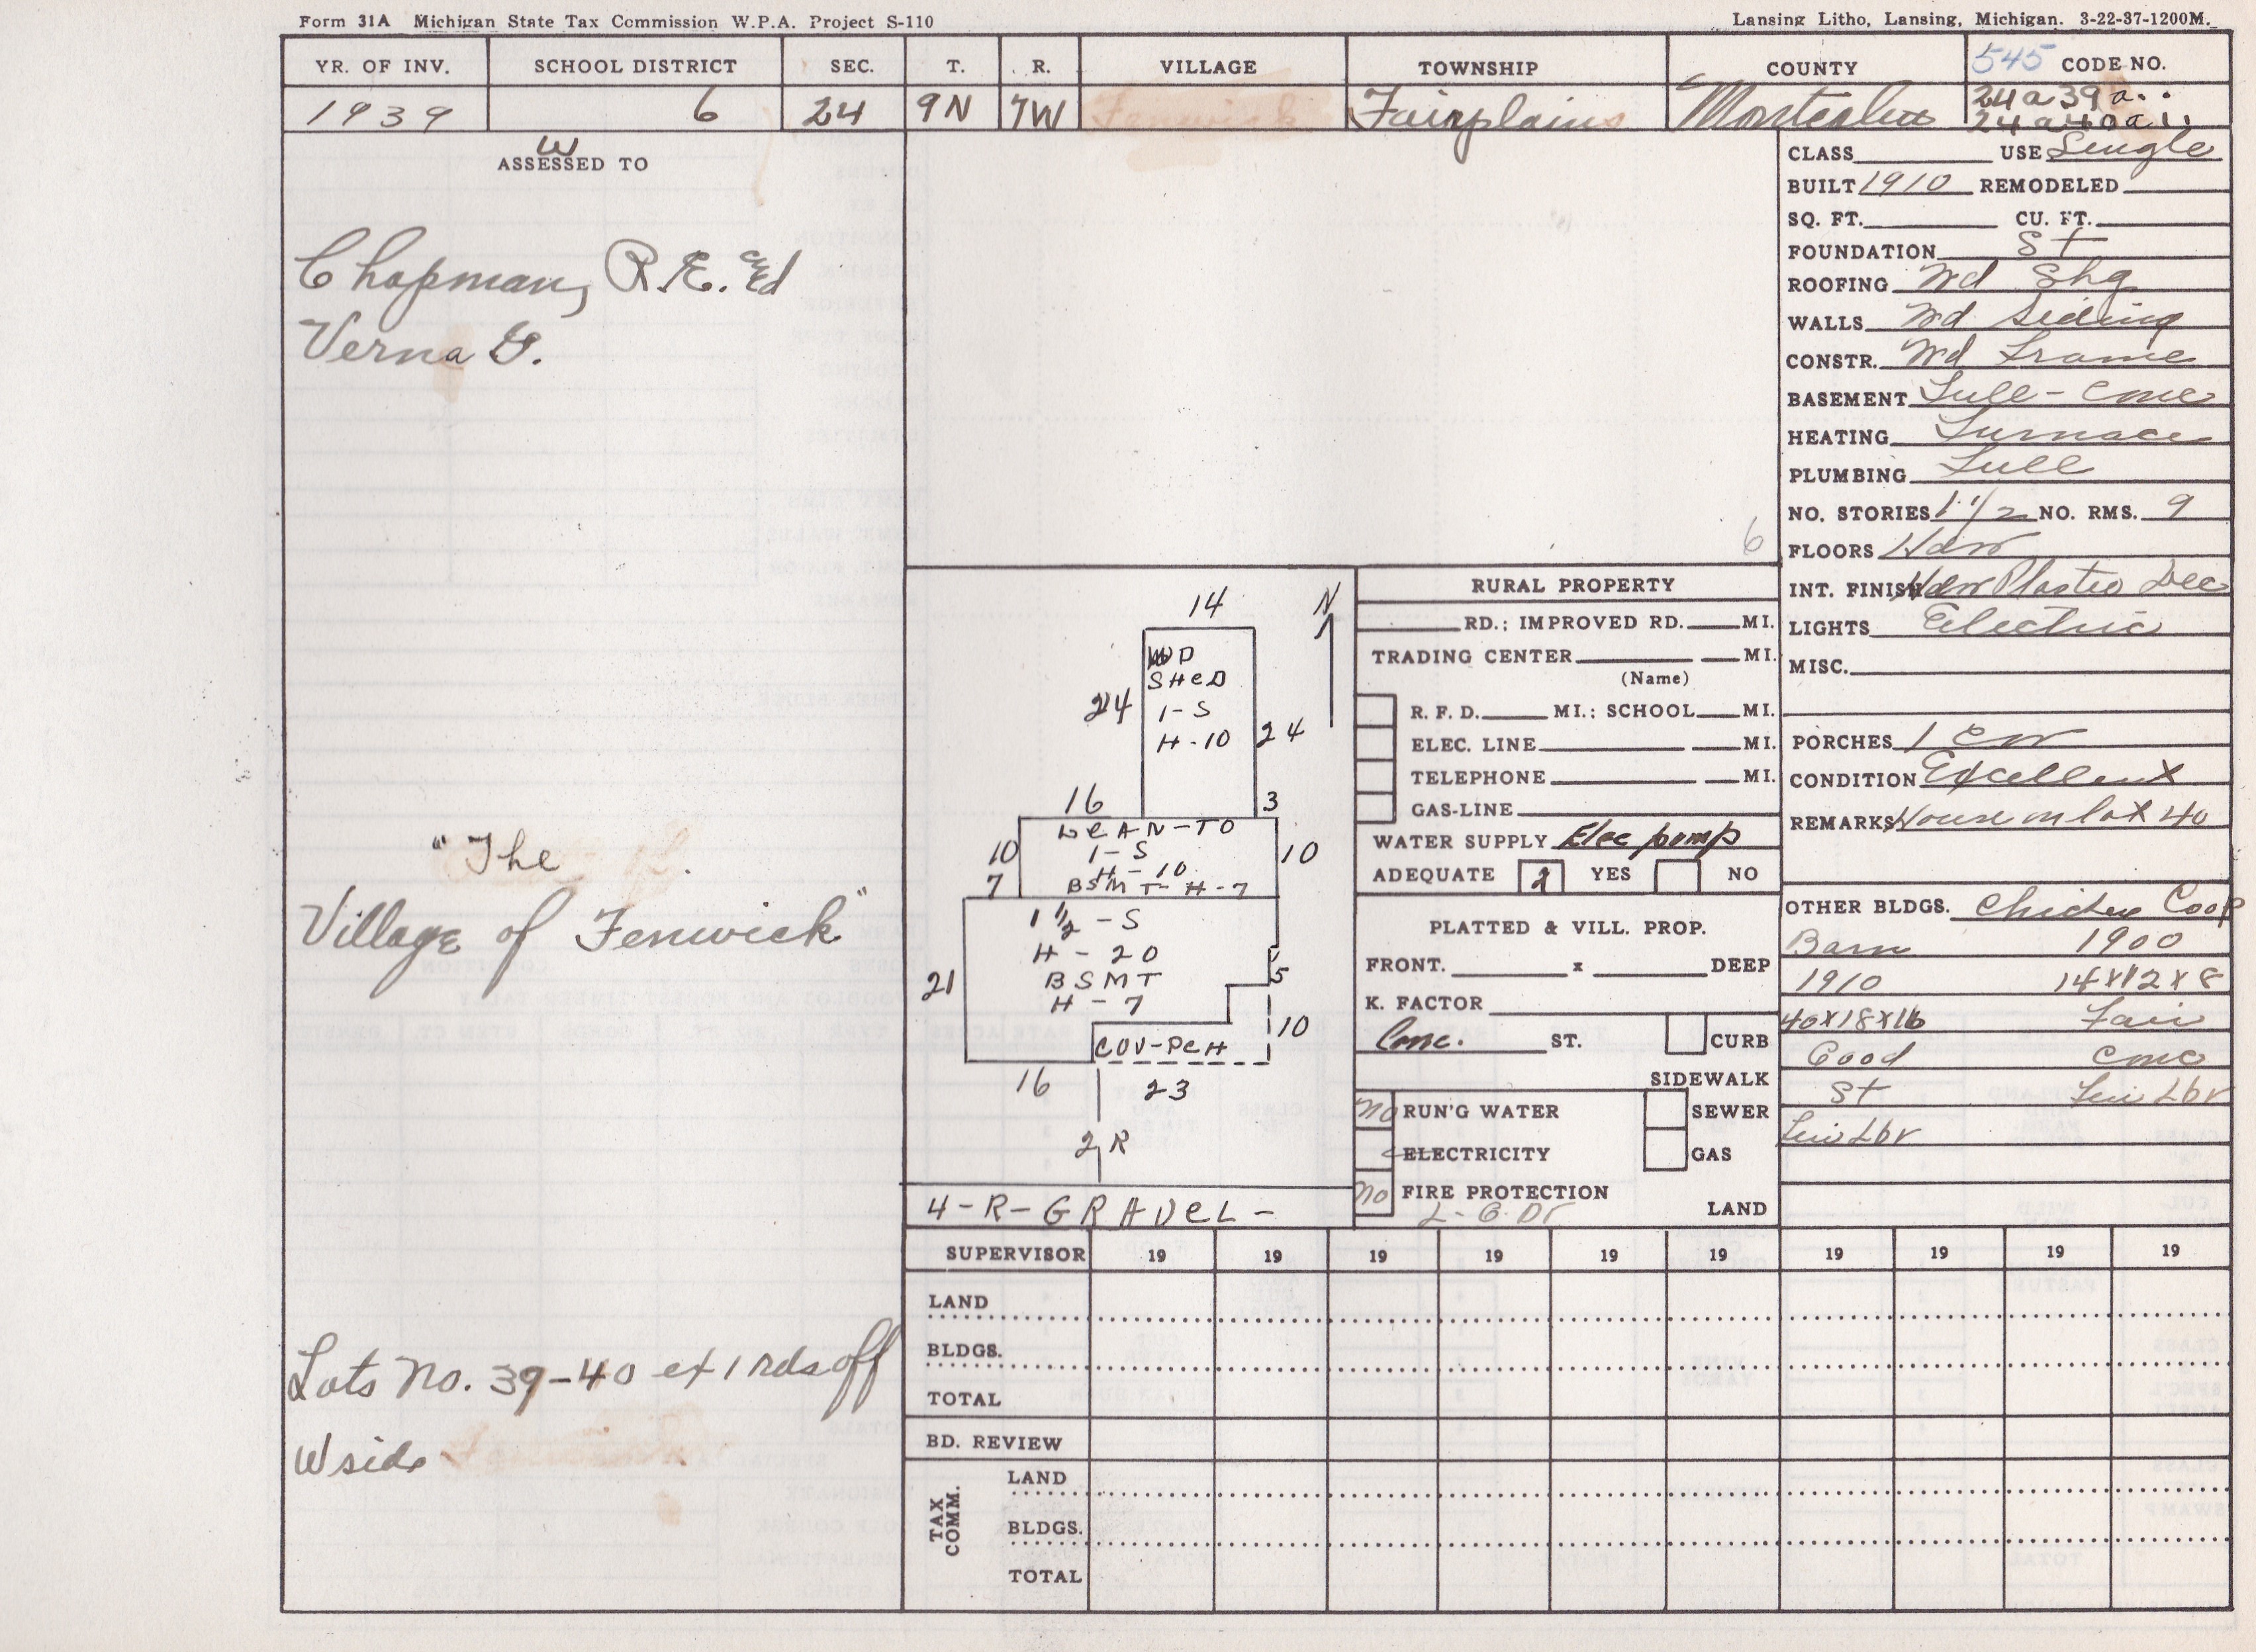 Form 31A Michigan State Tax Commission W.P.A. Project S-110
Lansing Litho, Lansing, Michigan. 3-22-37-1200M.
YR. OF INV. SCHOOL DISTRICT SEC. T. R. VILLAGE TOWNSHIP COUNTY 545 CODE NO.
1939 6 24 9N 7W Fenwick Fairplains Montcalm 24a39a..
24a40a..
W
ASSESSED TO
Chapman, R.E. and
Verna G.
"The
Village of Fenwick"
Lots No. 39-40 ex 1 rds off
W side
6
14 N
WD
SHED
1-S
H-10
24 24
16 3
LEAN-TO
1-S
H-10
BSMT-H-7
10 10
7
1 1/2 -S
H-20
BSMT
H-7
21 5
COV-PCH
10
16 23
2 R
4-R-GRAVEL-
RURAL PROPERTY
RD.; IMPROVED RD. MI.
TRADING CENTER MI.
(Name)
R. F. D. MI.; SCHOOL MI.
ELEC. LINE MI.
TELEPHONE MI.
GAS-LINE
WATER SUPPLY Elec pump
ADEQUATE YES NO
PLATTED & VILL. PROP.
FRONT. x DEEP
K. FACTOR
Conc. ST. CURB
SIDEWALK
no RUN'G WATER SEWER
ELECTRICITY GAS
no FIRE PROTECTION
L-G Dr LAND
CLASS USE Single
BUILT 1910 REMODELED
SQ. FT. CU. FT.
FOUNDATION St
ROOFING Wd Shg
WALLS Wd Siding
CONSTR. Wd Frame
BASEMENT Full-Conc
HEATING Furnace
PLUMBING Full
NO. STORIES 1 1/2 NO. RMS. 9
FLOORS Hdw
INT. FINISH Hdw Plastic Dec
LIGHTS Electric
MISC.
PORCHES 1 Cov
CONDITION Excellent
REMARKS House on lot 40
OTHER BLDGS. Chicken Coop
Barn 1900
1910 14x12x8
40x18x16 Fair
Good Conc
St Lbr
Lbr
SUPERVISOR 19 19 19 19 19 19 19 19 19 19
LAND
BLDGS.
TOTAL
BD. REVIEW
TAX COMM.
LAND
BLDGS.
TOTAL